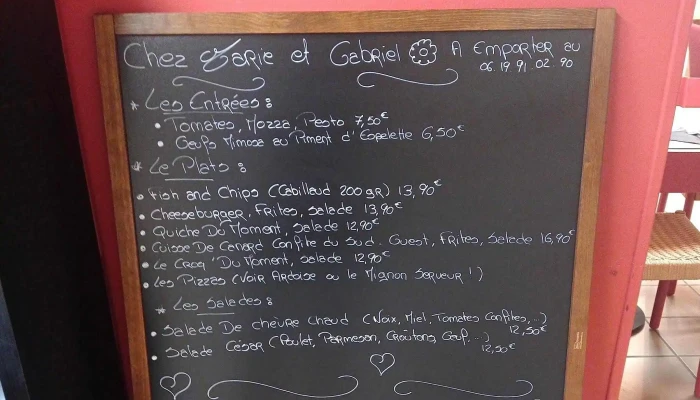 Chez Marie et Gabriel A Emporter au
06.19.91.02.90
* Les Entrées :
• Tomates, Mozza, Pesto 7,50€
• Oeufs Mimosa au Piment d'Espelette 6,50€
* Le Plats :
• Fish and Chips (Cabillaud 200gr) 13,90€
• Cheeseburger, Frites, Salade 13,90€
• Quiche Du Moment, Salade 12,90€
• Cuisse De Canard Confite du Sud-Ouest, Frites, Salade 16,90€
• Le Croq' Du Moment, Salade 12,90€
• Les Pizzas (Voir Ardoise ou le Mignon Serveur !)
* Les Salades :
• Salade De chèvre chaud (Noix, Miel, Tomates Confites,..)
12,50€
• Salade César (Poulet, Parmesan, Croûtons, Oeuf...)
12,50€